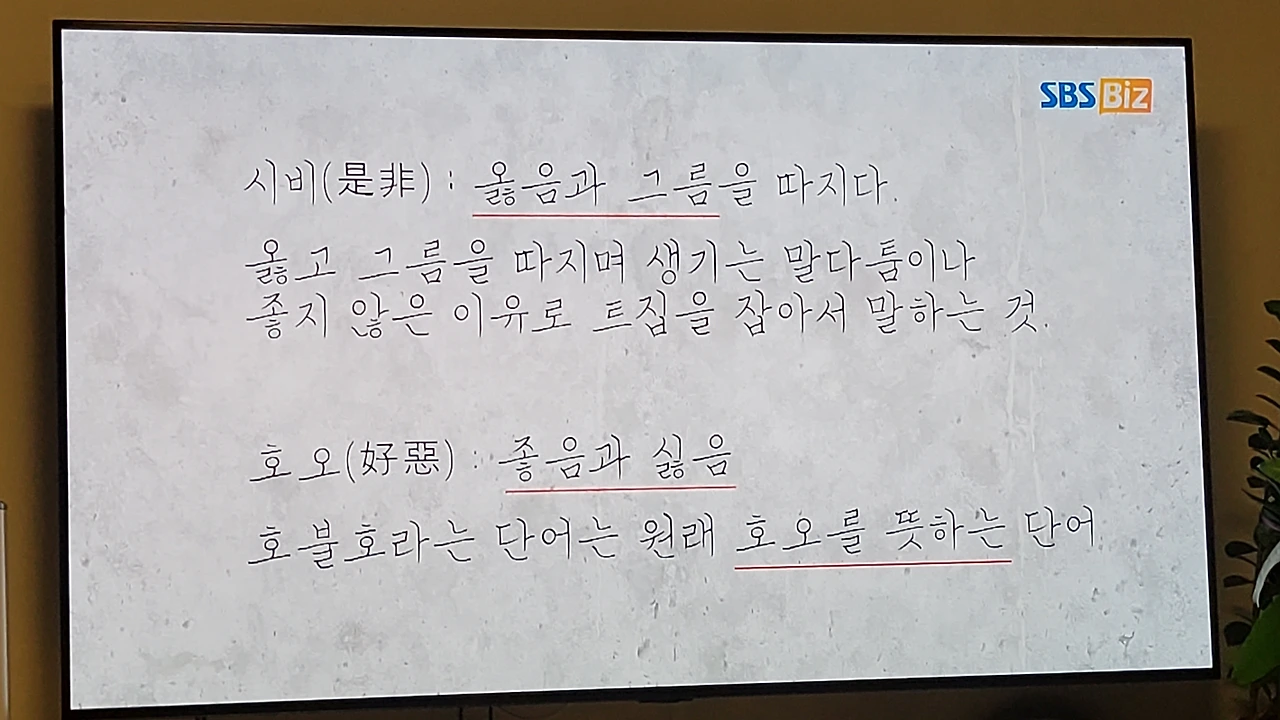 SBS Biz
시비(是非) : 옳음과 그름을 따지다.
옳고 그름을 따지며 생기는 말다툼이나
좋지 않은 이유로 트집을 잡아서 말하는 것.
호오(好惡) : 좋음과 싫음
호불호라는 단어는 원래 호오를 뜻하는 단어